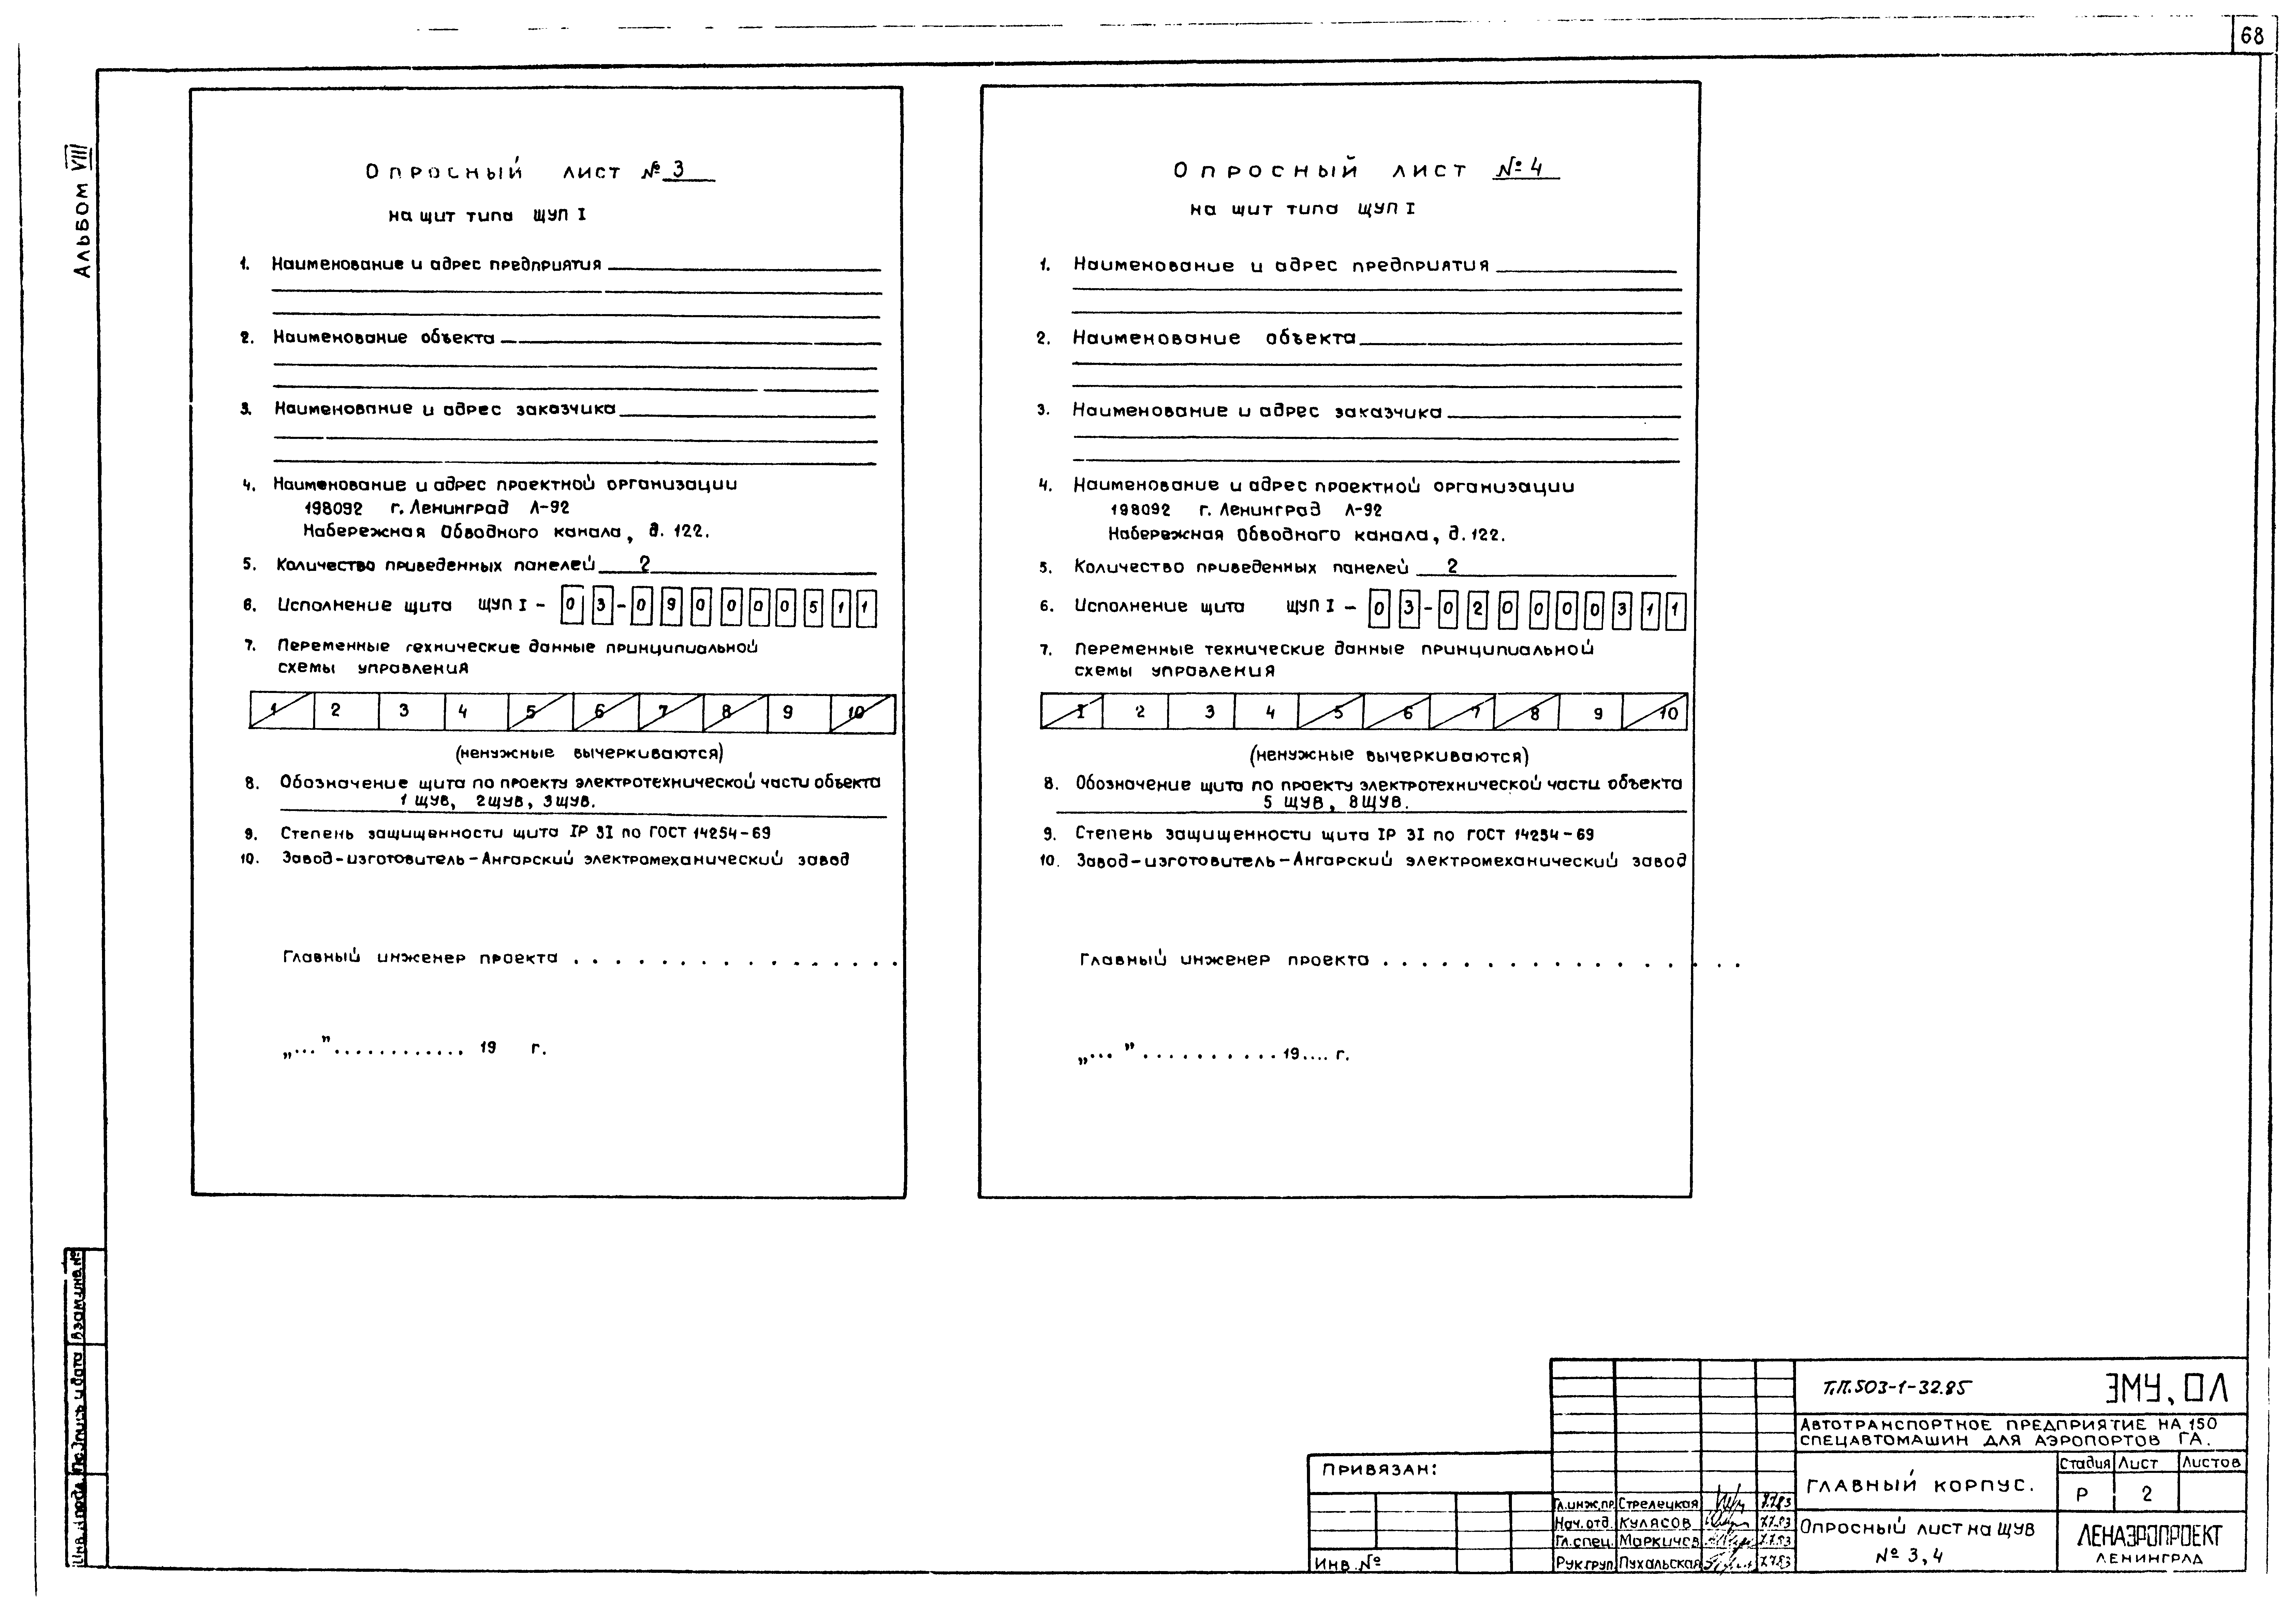 68
Альбом VIII
Опросный лист № 3
на щит типа ЩУП I
1. Наименование и адрес предприятия
2. Наименование объекта
3. Наименование и адрес заказчика
4. Наименование и адрес проектной организации
198092 г. Ленинград Л-92
Набережная Обводного канала, д. 122.
5. Количество приведенных панелей 2
6. Исполнение щита ЩУП I - 0 3 - 0 9 0 0 0 0 5 1 1
7. Переменные технические данные принципиальной
схемы управления
1 2 3 4 5 6 7 8 9 10
(ненужные вычеркиваются)
8. Обозначение щита по проекту электротехнической части объекта
1 ЩУВ, 2ЩУВ, 3ЩУВ.
9. Степень защищенности щита IP 3I по ГОСТ 14254-69
10. Завод-изготовитель-Ангарский электромеханический завод
Главный инженер проекта . . . . . . . . . . . . . . . .
„..." ............ 19 г.
Опросный лист № 4
на щит типа ЩУП I
1. Наименование и адрес предприятия
2. Наименование объекта
3. Наименование и адрес заказчика
4. Наименование и адрес проектной организации
198092 г. Ленинград Л-92
Набережная Обводного канала, д. 122.
5. Количество приведенных панелей 2
6. Исполнение щита ЩУП I - 0 3 - 0 2 0 0 0 0 3 1 1
7. Переменные технические данные принципиальной
схемы управления
I 2 3 4 5 6 7 8 9 10
(ненужные вычеркиваются)
8. Обозначение щита по проекту электротехнической части объекта
5 ЩУВ, 8ЩУВ.
9. Степень защищенности щита IP 3I по ГОСТ 14254-69
10. Завод-изготовитель-Ангарский электромеханический завод
Главный инженер проекта . . . . . . . . . . . . . . . .
„... " .......... 19.... г.
Инв. № подл. Подпись и дата Взам.инв.№
Привязан:
Инв. №
Гл.инж.пр. Стрелецкая 7.7.83
Нач.отд. Кулясов 7.7.83
Гл.спец. 7.7.83
Рук.груп. Пухальская 7.7.83
Т.П.503-1-32.85 ЭМУ, ОЛ
Автотранспортное предприятие на 150
спецавтомашин для аэропортов ГА.
Главный корпус.
Стадия Лист Листов
Р 2
Опросный лист на ЩУВ
№ 3,4
ЛЕНАЭРОПРОЕКТ
Ленинград